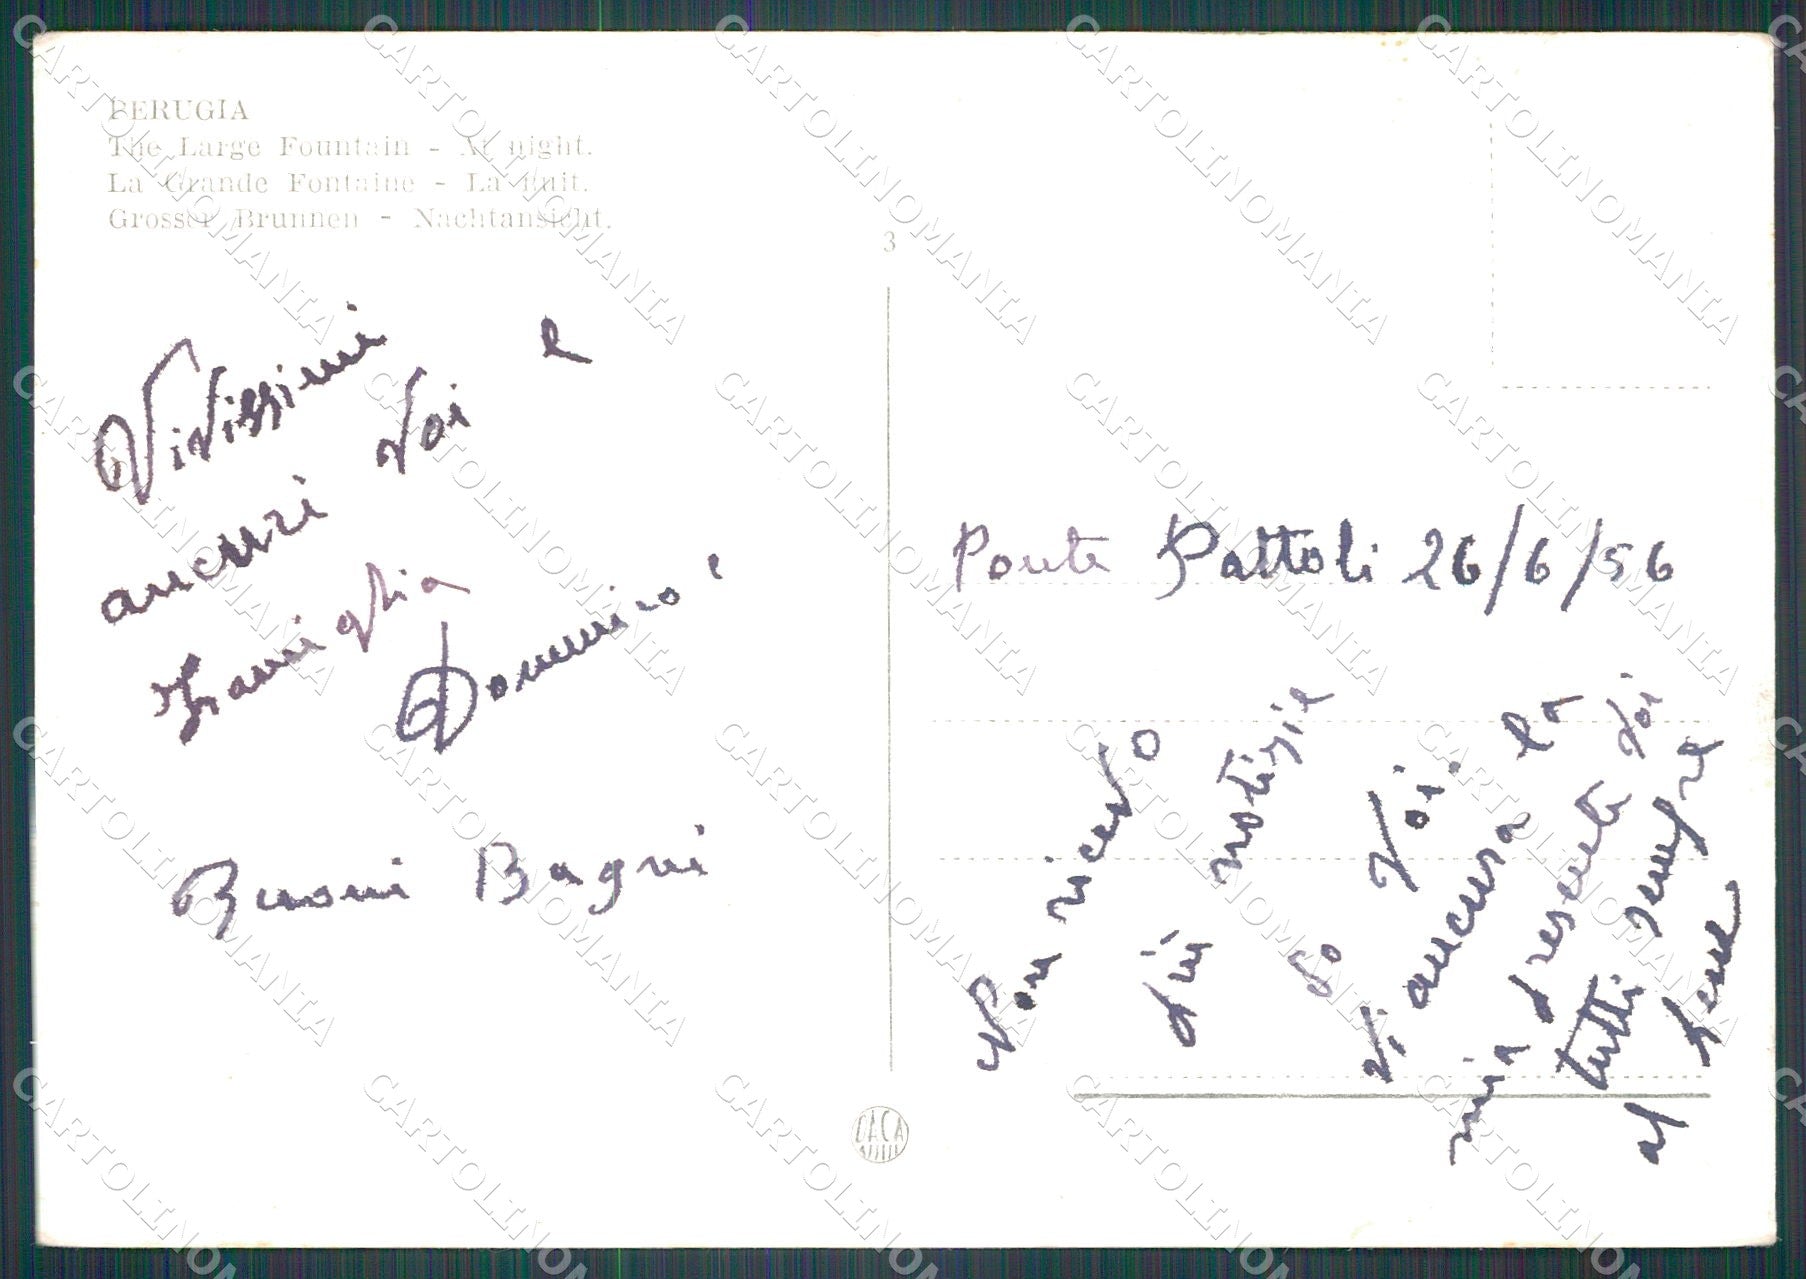 PERUGIA
The Large Fountain - At night.
La Grande Fontaine - La nuit.
Grosser Brunnen - Nachtansicht.
3
Vivissimi
auguri Voi e
Famiglia
Domenico
Buoni Bagni
Ponte Pattoli 26/6/56
Non ricevo
più notizie
da Voi.
Vi auguro la
mia presente Voi
tutti sempre
al bene
CARTOLINOMANIA